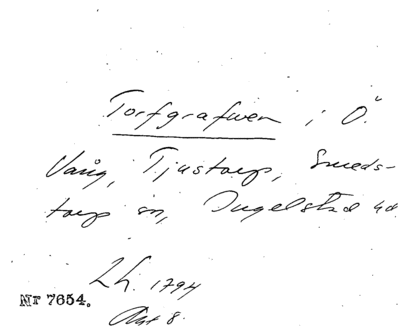 Torfgrafwen i Ö.
Vång, Tjustorp, Smeds-
torp sn, Ingelstad hd.
Lh. 1794
Akt 8.
Nr 7654.